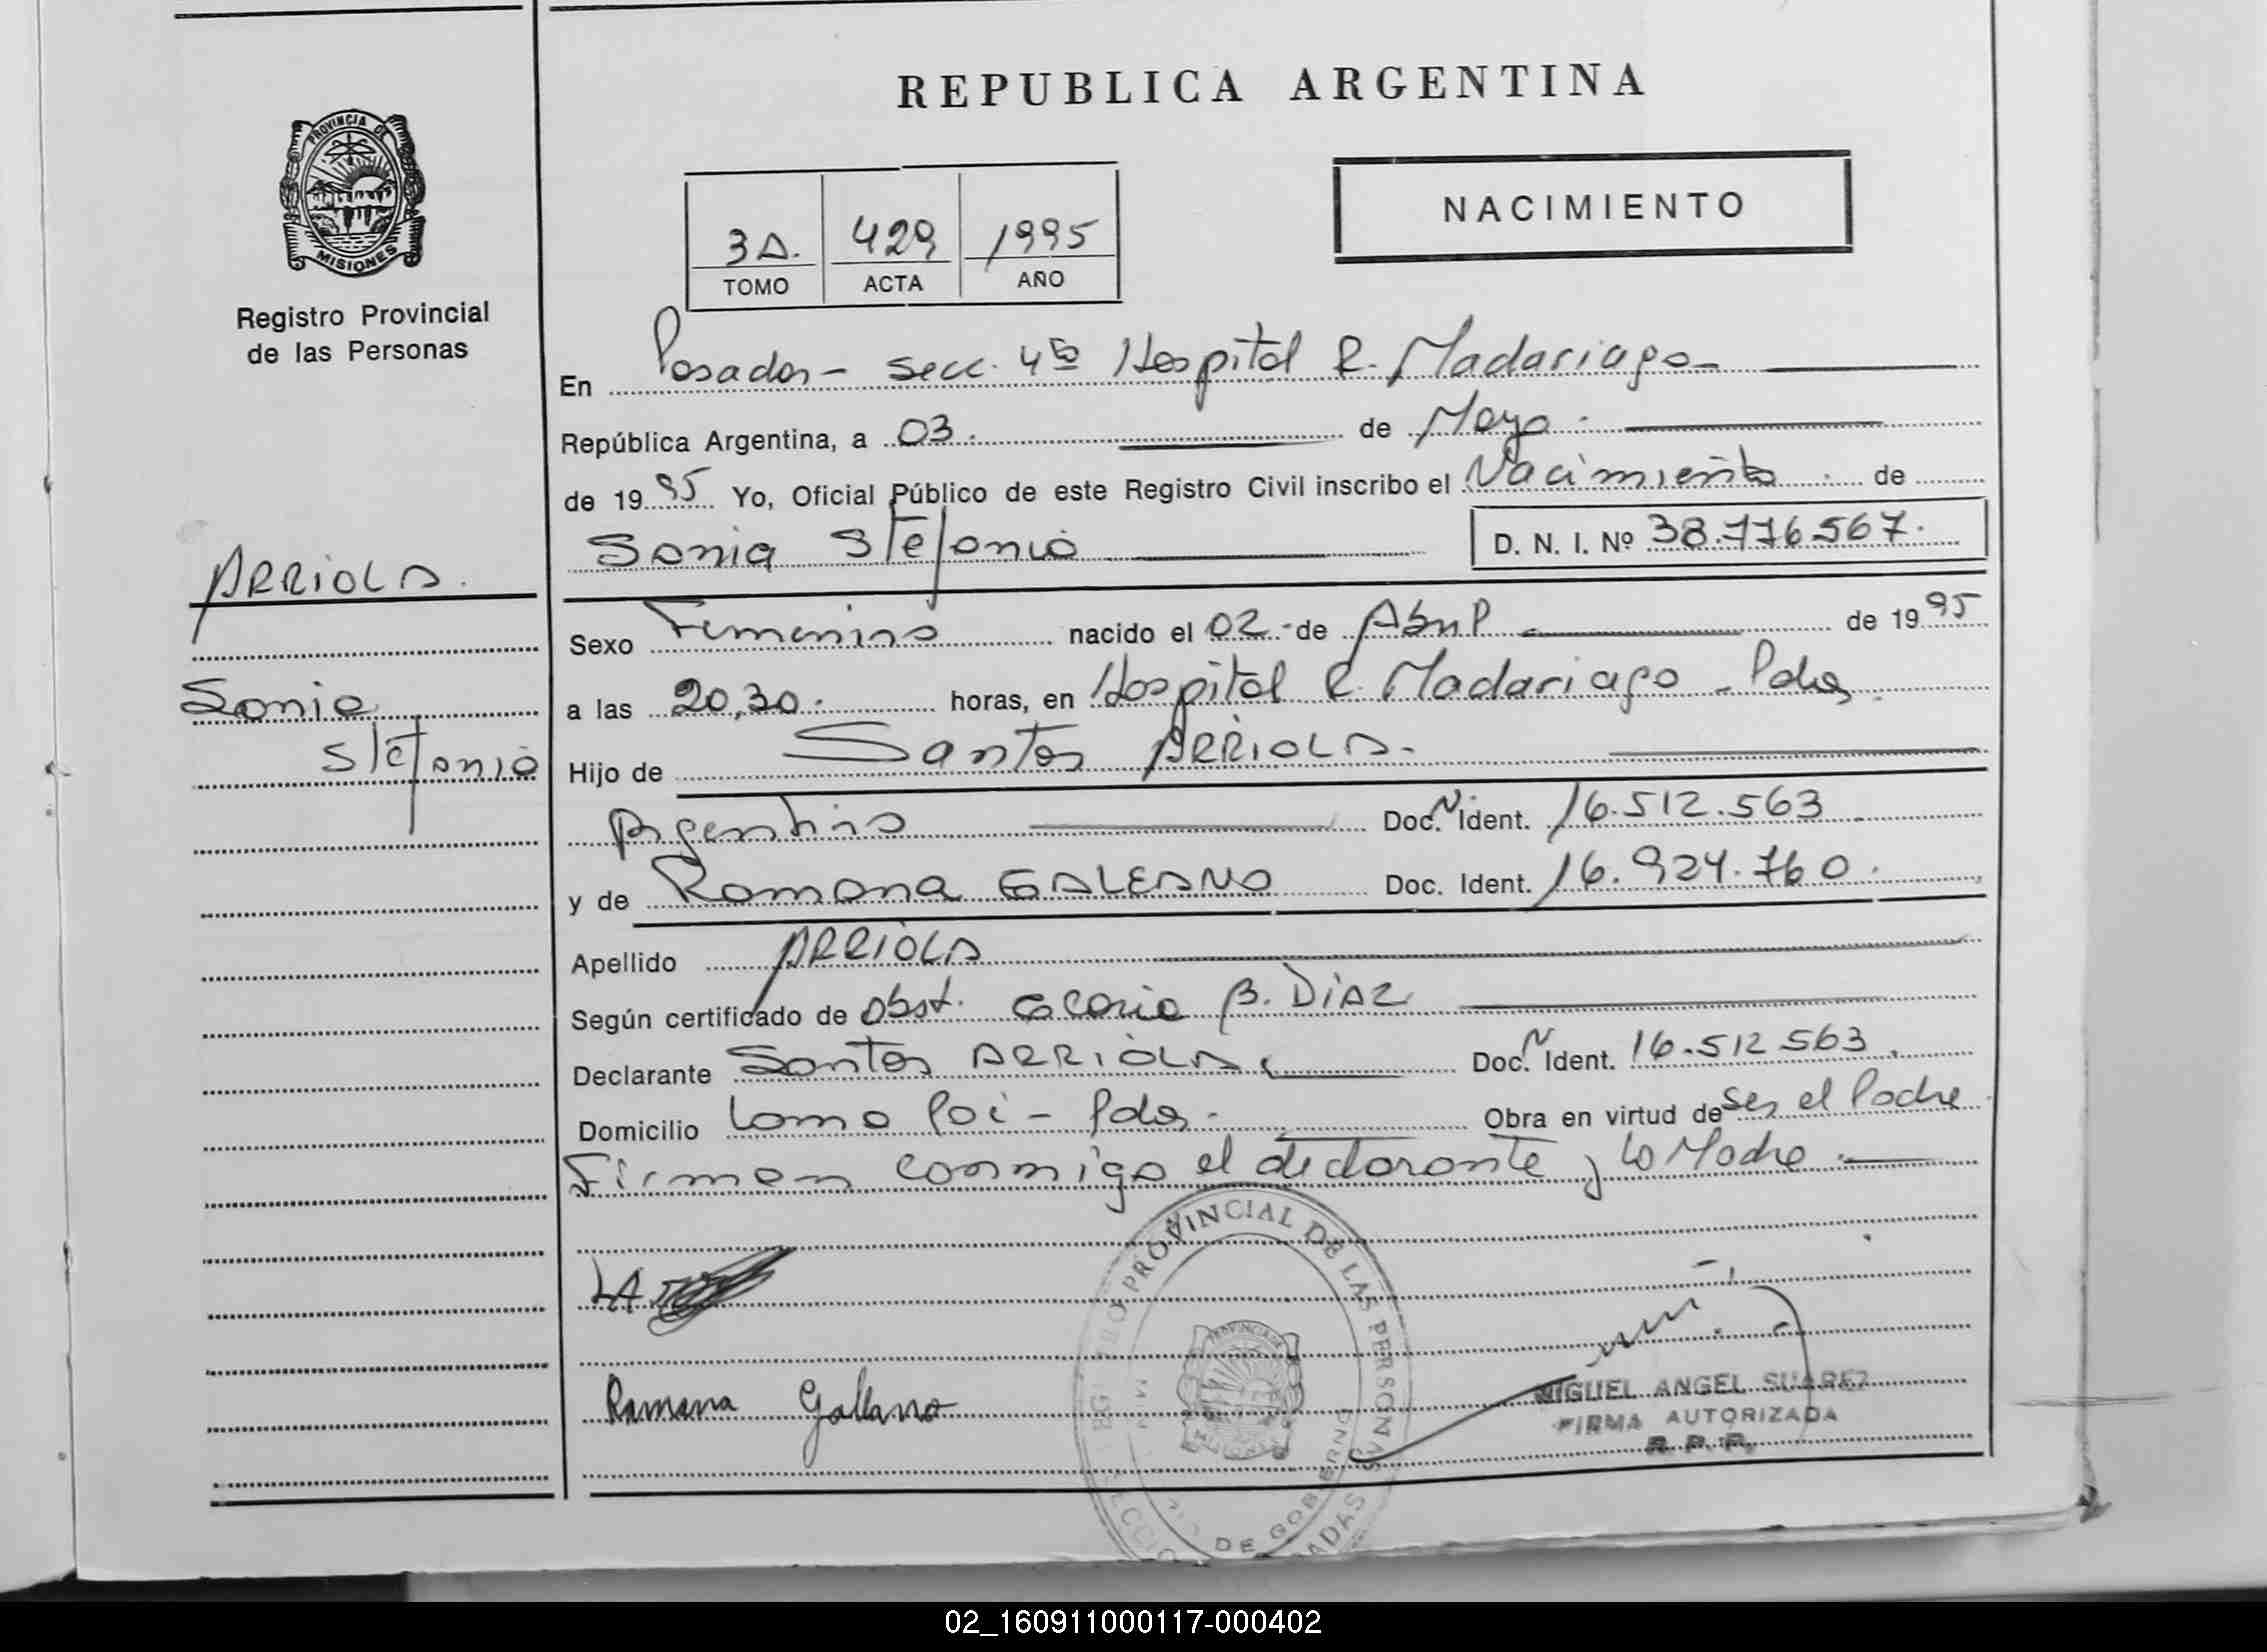 REPUBLICA ARGENTINA
PROVINCIA DE
MISIONES
Registro Provincial
de las Personas
NACIMIENTO
3A. 429 1995
TOMO ACTA AÑO
En Posadas - secc. 4ta Hospital R. Madariaga -
República Argentina, a 03. de Mayo.
de 1995 Yo, Oficial Público de este Registro Civil inscribo el Nacimiento. de
Sonia Stefania D. N. I. Nº 38.776.567.
ARRIOLA.
Sonia
Stefania
Sexo Femenino nacido el 02 - de Abril de 1995
a las 20,30. horas, en Hospital R. Madariaga - Pdas.
Hijo de Santos ARRIOLA.
Argentino Doc. N. Ident. 16.512.563
y de Ramona GALEANO Doc. Ident. 16.924.760.
Apellido ARRIOLA
Según certificado de Obst. Gloria B. DIAZ
Declarante Santos ARRIOLA Doc. N Ident. 16.512.563.
Domicilio Loma Poi - Pdas. Obra en virtud de Ser el Padre
Firman conmigo el declarante y la Madre.
REGISTRO PROVINCIAL DE LAS PERSONAS
PROVINCIA DE
DE GOBIERNO
Ramona Galeano
MIGUEL ANGEL SUAREZ
FIRMA AUTORIZADA
R. P. P.
02_160911000117-000402